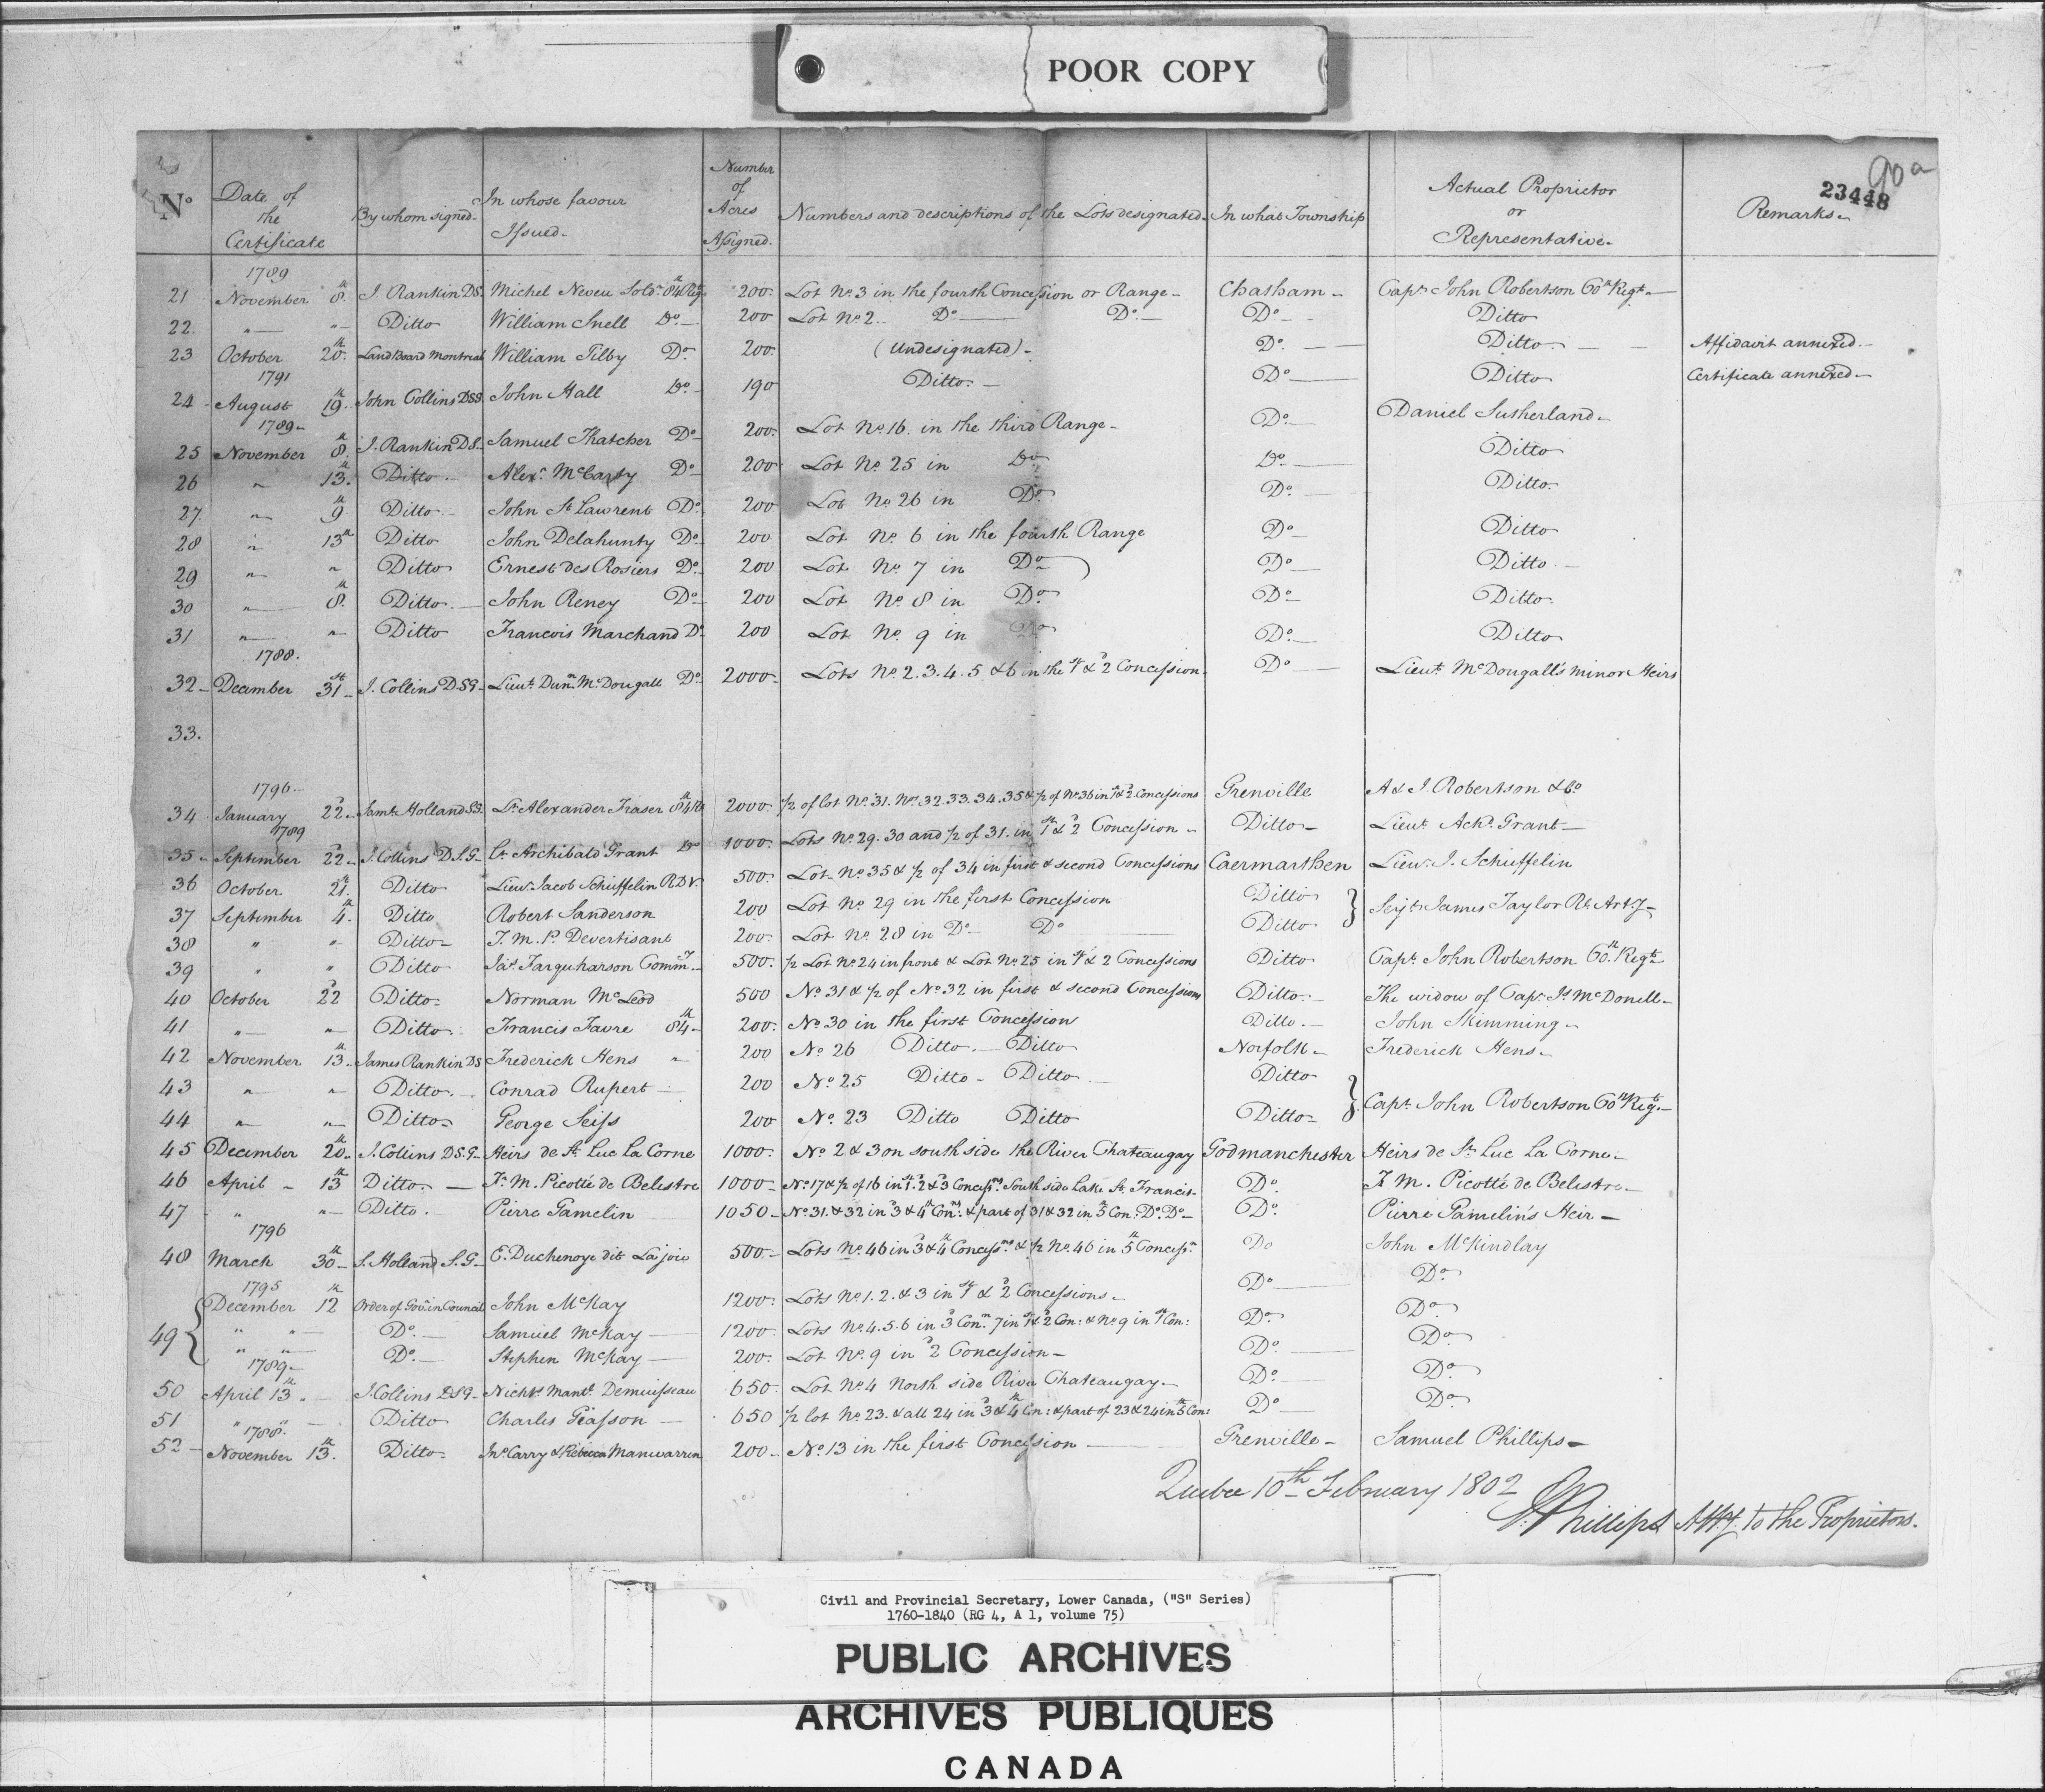 POOR COPY
90a
23448
No Date of the Certificate By whom signed. In whose favour Issued. Number of Acres Assigned. Numbers and descriptions of the Lots designated. In what Township Actual Proprietor or Representative. Remarks
1789
21 November 8th J. Rankin DS. Michel Neveu Soldr 84th Regt 200. Lot No. 3 in the fourth Concession or Range Chatham Capt John Robertson 60th Regt
22. " " Ditto William Snell Do 200 Lot No 2. Do Do Do Ditto
23 October 20th Land Board Montreal William Tilby Do 200. (Undesignated) Do. Ditto Affidavit annexed.
1791
24 August 19th John Collins DSG John Hall Do 190 Ditto. Do Ditto Certificate annexed
1789
25 November 8th J. Rankin DS Samuel Thatcher Do 200. Lot No. 16. in the third Range Do Daniel Sutherland
26 " 13th Ditto Alexr McCarty Do 200 Lot No. 25 in Do Do Ditto
27. " 9th Ditto John St Lawrent Do 200 Lot No. 26 in Do Do Ditto.
28 " 13th Ditto John Delahunty Do 200 Lot No. 6 in the fourth Range Do Ditto
29 " " Ditto Ernest des Rosiers Do 200 Lot No. 7 in Do Do Ditto
30 " 8th Ditto John Reney Do 200 Lot No. 8 in Do Do Ditto
31 " " Ditto Francois Marchand Do 200 Lot No. 9 in Do Do Ditto
1788.
32 December 31st J. Collins DSG Lieut. Dunn McDougall Do 2000 Lots No. 2. 3. 4. 5 & 6 in the 1st & 2d Concession Do Lieut McDougall's minor Heirs
33.
1796
34 January 22d Saml Holland SG. Lt Alexander Fraser 84th 2000 1/2 of lot No. 31. No. 32. 33. 34. 35 & 1/2 of No. 36 in 1st & 2d Concessions Grenville A & J. Robertson & Co
1789
35 September 22d J. Collins D.S.G Lt Archibald Grant Do 1000. Lots No. 29. 30 and 1/2 of 31. in 1st & 2d Concession Ditto Lieut Achd Grant
36 October 21st Ditto Lieut Jacob Schieffelin R.D.V. 500. Lot No. 35 & 1/2 of 34 in first & second Concessions Caermarthen Lieut J. Schieffelin
37 September 4th Ditto Robert Sanderson 200 Lot No 29 in the first Concession Ditto } Serjt James Taylor Rl Arty
38 " " Ditto J. M. P. Devertisant 200. Lot No. 28 in Do Do Ditto
39 " " Ditto Jas Farquharson Commy 500. 1/2 Lot No. 24 in front & Lot No 25 in 1st & 2d Concessions Ditto Capt John Robertson 60th Regt
40 October 22d Ditto Norman McLeod 500 No. 31 & 1/2 of No. 32 in first & second Concessions Ditto The widow of Capt Js McDonell
41 " " Ditto Francis Favre 84th 200. No. 30 in the first Concession Ditto John Skimming
42 November 13th James Rankin DS Frederick Hens " 200 No 26 Ditto Ditto Norfolk Frederick Hens
43 " " Ditto Conrad Rupert 200 No. 25 Ditto Ditto Ditto } Capt John Robertson 60th Regt
44 " " Ditto George Seiss 200 No. 23 Ditto Ditto Ditto
45 December 20th J. Collins D.S.G Heirs de St Luc La Corne 1000. No 2 & 3 on south side the River Chateaugay Godmanchester Heirs de St Luc La Corne
46 April 13th Ditto Fs M. Picotté de Belestre 1000 No 17 & 1/2 of 16 in 1st 2d & 3d Concessns South side Lake St Francis Do F M. Picotté de Belestre
47 " " Ditto. Pierre Gamelin 1050 No. 31. & 32 in 3d & 4th Cons. & part of 31 & 32 in 5th Con. Do. Do Do. Pierre Gamelin's Heir
1796
48 March 30th S. Holland S.G E. Duchenoye dit Lajoie 500 Lots No. 46 in 3d & 4th Concessns & 1/2 No. 46 in 5th Concessn Do John McKindlay
1795
49 { December 12th Order of Govr in Council John McKay 1200. Lots No. 1. 2. & 3 in 1st & 2d Concessions Do Do
" " Do. Samuel McKay 1200. Lots No. 4. 5. 6 in 3d Con. 7 in 1st & 2d Con: & No 9 in 1st Con: Do Do
" " Do. Stephen McKay 200. Lot No. 9 in 2d Concession Do Do
1789
50 April 13th J. Collins DSG Nichs Mantl Demuisseau 650 Lot No. 4 North side River Chateaugay Do Do
51 " " Ditto Charles Giasson 650 1/2 lot No. 23. & all 24 in 3d & 4th Con: & part of 23 & 24 in 5th Con: Do Do
1788.
52 November 13th Ditto Jno. Carry & Rebecca Manwarren 200 No. 13 in the first Concession Grenville Samuel Phillips
Quebec 10th February 1802
S. Phillips Atty. to the Proprietors.
Civil and Provincial Secretary, Lower Canada, ("S" Series)
1760-1840 (RG 4, A 1, volume 75)
PUBLIC ARCHIVES
ARCHIVES PUBLIQUES
CANADA